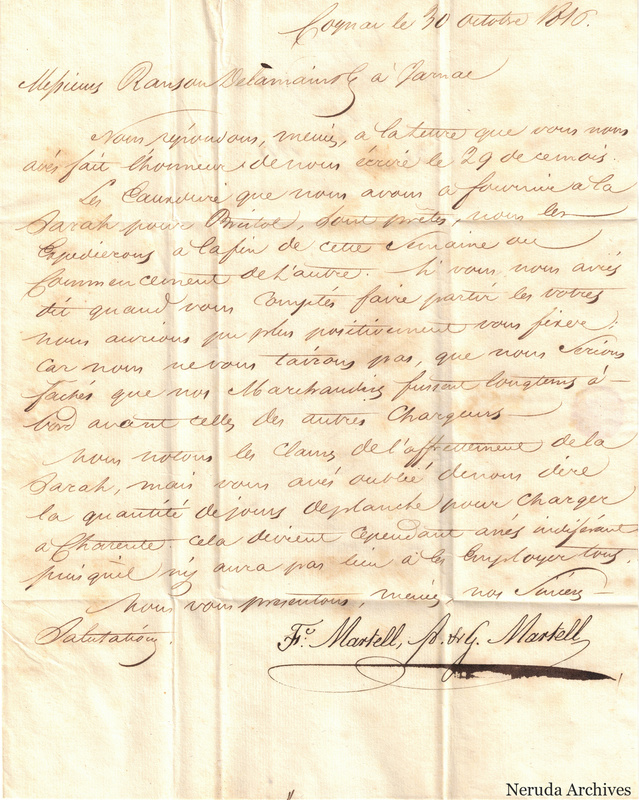 Cognac le 30 octobre 1816.
Messieurs Ranson Delamain & Cie à Jarnac
Nous répondons, messrs, a la lettre que vous nous
avés fait lhonneur de nous écrire le 29 de ce mois.
Les Eaudevie que nous avons a fournir a la
Sarah pour Bristol, sont prêtes, nous les
Expédierons a la fin de cette Semaine ou
Commencement de l'autre. Si vous nous aviés
dit quand vous Comptés faire partir les votres
nous aurions pu plus positivement vous fixer;
car nous ne vous tairons pas, que nous Serions
fachés que nos Marchandises fussent longtems à
bord avant celles des autres Chargeurs —
Nous notons les Clauses de l'affrettement de la
Sarah, mais vous avés oublié de nous dire
la quantité de jours de planche pour charger
a Charente. cela devient cependant assés indiférent
puisquil n'y aura pas lieu à les Employer tous.
Nous vous presentons, messrs, nos Sincères
Salutations.
Fc. Martell, J. & G. Martell
Neruda Archives